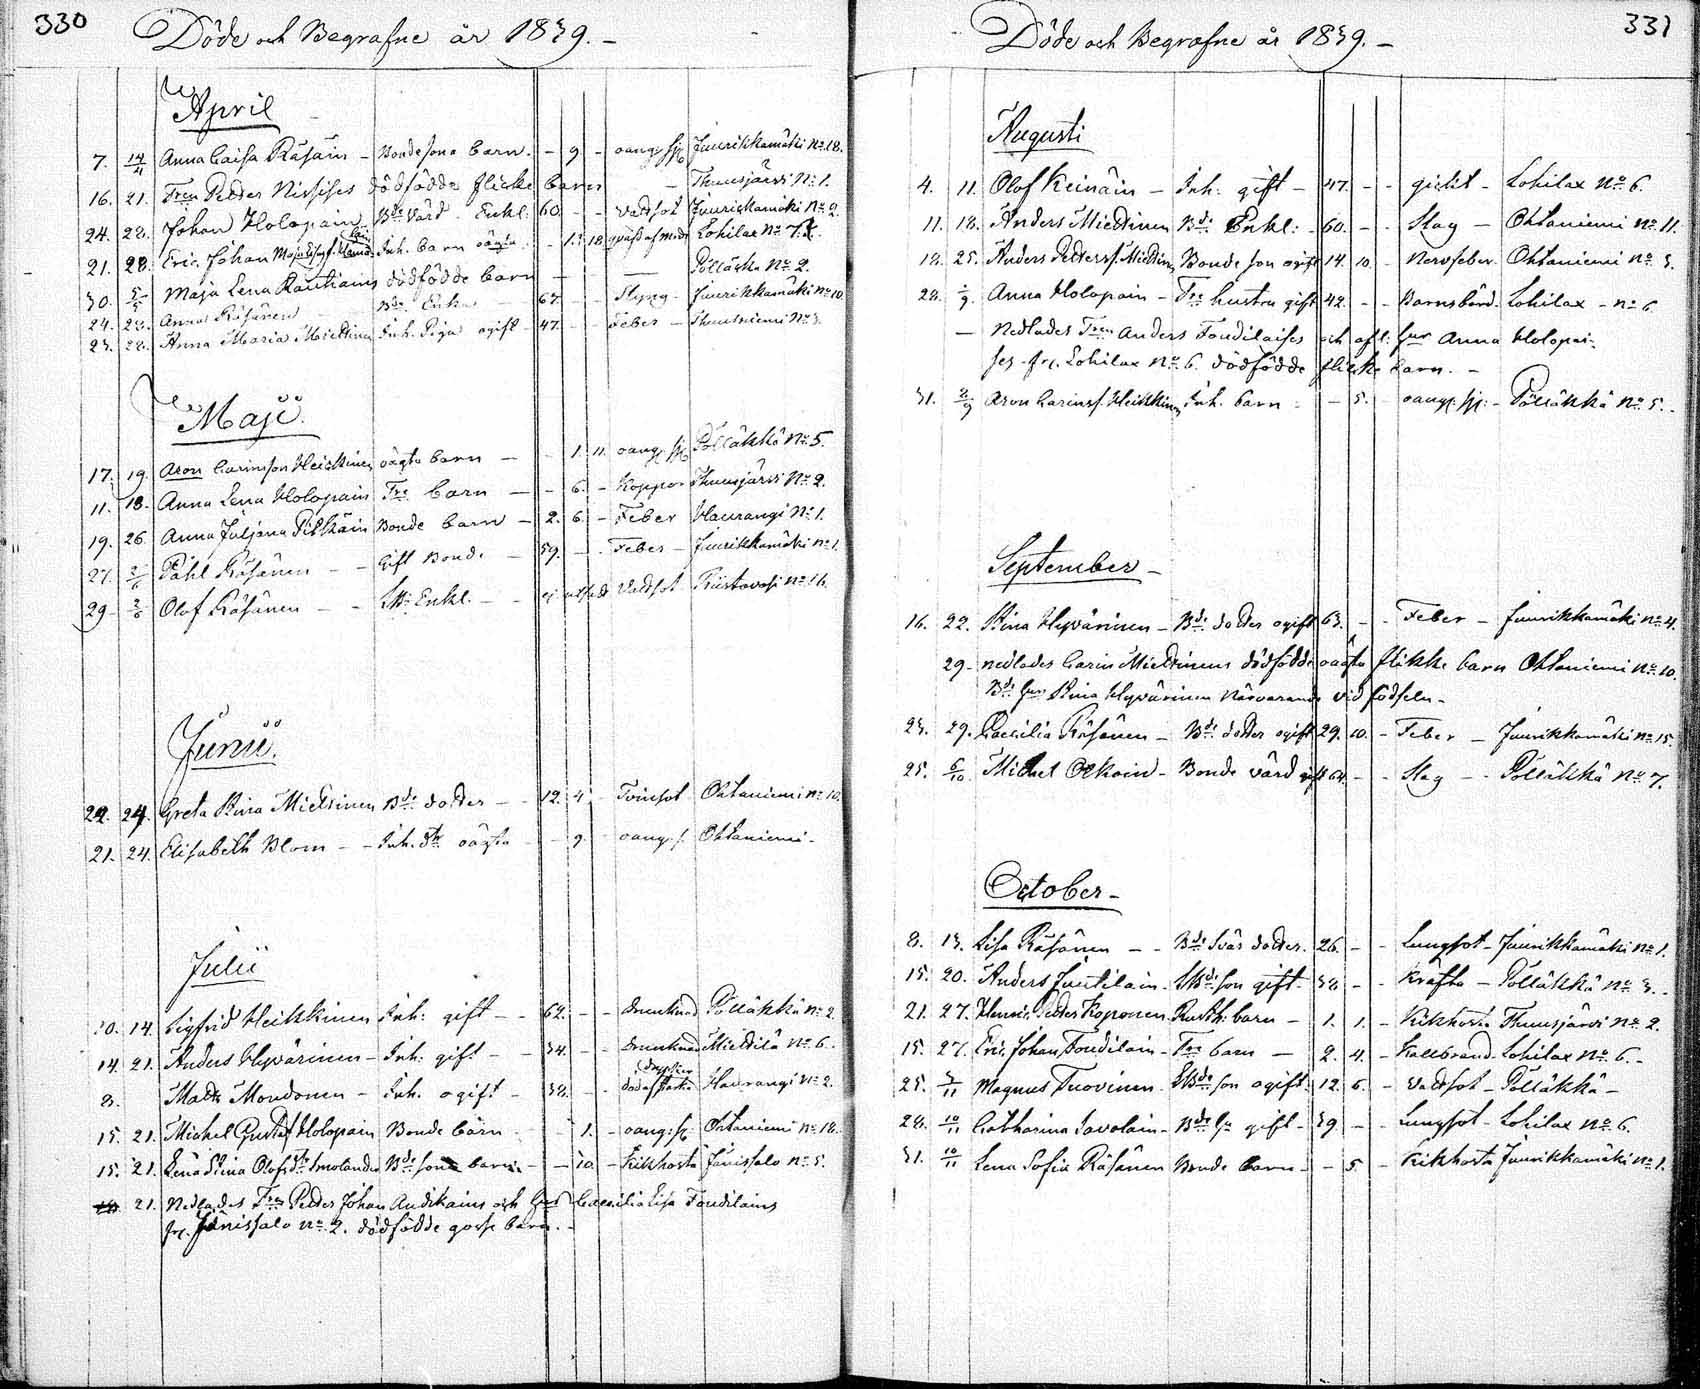 330
Döde och Begrafne år 1839. –
April
7. 14/4 Anna Caisa Räsäin – Bondesons barn. – 9 – oang. sj. Juurikkamäki No 18.
16. 21. Fren Petter Nissises dödfödda flicke barn – Thuusjärvi No 1.
24. 28. Johan Holopain Bde Värd. Enkl. 60. – – Vattsot Juurickamäki No 2.
21. 28. Eric Johan Inh. barn oägta – 1. 18 qväfd af modr Lohilax No 7.
30. 5/5 Maja Lena Rautiains dödfödde barn – Pölläckä No 2.
24. 28. Anna Räsänen Bde Enka – 67. – – Styng – Juurikkamäki No 10
23. 28. Anna Maria Miettinen Inh. Piga ogift – 47. – – Feber –
Maji.
17. 19. Aron Carinson Heickinen oägta barn – – 1. 11. oang. sj. Pölläkkä No 5.
11. 18. Anna Lena Holopain Tre barn – – 6. – Koppor Thuusjärvi No 2.
19. 26. Anna Juljana Pitkäin Bonde barn – 2. 6. – Feber Haurangi No 1.
27. 2/6 Påhl Räsänen – – Gift Bonde – 59. – – Feber – Juurikkamäki No 1.
29. 2/6 Olof Räsänen – – Enkl. – – Vattsot No 16.
Junii.
22. 24. Greta Stina Miettinen Bde dotter – – 12. 4 – Tvinsot Ohtaniemi No 10.
21. 24. Elisabeth Blom – – Inh. dtr oägta – – 9. – oang. s. Ohtaniemi –
Julii
10. 14. Sigfrid Heikkinen Inh: gift – – 62. – – drunknad Pölläkkä No 2
14. 21. Anders Hyvärinen – Inh: gift – – 34. – – drunknad Miettilä No 6.
8. Matts Mondonen – Inh. ogift – 38. – – Haurangi No 2.
15. 21. Michel Gustaf Holopain Bonde barn – – 1. – oang: sj. Ohtaniemi No 18.
15. 21. Lena Stina Olofsdtr Smolander Bde sons barn – – 10. – Kikhosta Jänissalo No 5.
21. Nedlades Fren Petter Johan Autikains och hus Caecilia Lisa Toutilains
fr. Jänissalo No 2. dödfödde gosse barn. –
331
Döde och Begrafne år 1839. –
Augusti
4. 11. Olof Keinäin – Inh: gift – 47. – – gicktit – Lohilax No 6.
11. 18. Anders Miettinen Bde Enkl: – 60. – – Slag – Ohtaniemi No 11.
18. 25. Anders Petterss. Miettinen Bonde son ogift 14. 10. – Nervfeber. Ohtaniemi No 3.
28. 1/9. Anna Holopain – Tre hustru gift 42. – – Barnsbörd. Lohilax – No 6.
– Nedlades Fren Anders Toudilaises och afl: hus Anna Holopai-
ses fr. Lohilax No 6. dödfödde flicke barn. –
31. 8/9 Aron Carinss. Heikkinen Inh. barn – – 5. – oang. sj. – Pölläkkä No 5. –
September –
16. 22. Stina Hyvärinen – Bde dotter ogift 63. – – Feber – Juurikkamäki No 4.
29. nedlades Carin Miettinens dödfödde oägta flikke barn Ohtaniemi No 10.
Bde hus Stina Hyvärinen närvarande vid födseln. –
23. 29. Caecilia Räsänen – Bde dotter ogift 29. 10. – Feber – Juurikkamäki No 15.
25. 6/10. Michel Ockoin – Bonde värd gift 64. – – Slag – – Pölläkkä No 7.
October –
8. 13. Lisa Räsänen – – Bde Svär dotter. 26. – – Lungsot – Juurikkamäki No 1.
15. 20. Anders Juutilain – Bde son gift – 38 – – Kräfta – Pölläkkä No 3. –
21. 27. Henric Petter Koponen Rusth: barn – 1. 1. – Kikhosta Thuusjärvi No 2.
15. 27. Eric Johan Toudilain – Tre barn – 2. 4. – Kallbrand – Lohilax No 6. –
25. 3/11 Magnus Tuovinen – Bde son ogift. 12. 6. – Vattsot – Pölläkkä –
28. 10/11 Catharina Savolain – Bde hu gift – 39 – – Lungsot – Lohilax No 6.
31. 10/11 Lena Sofia Räsänen Bonde barn – – 5. – Kikhosta Juurikkamäki No 1.